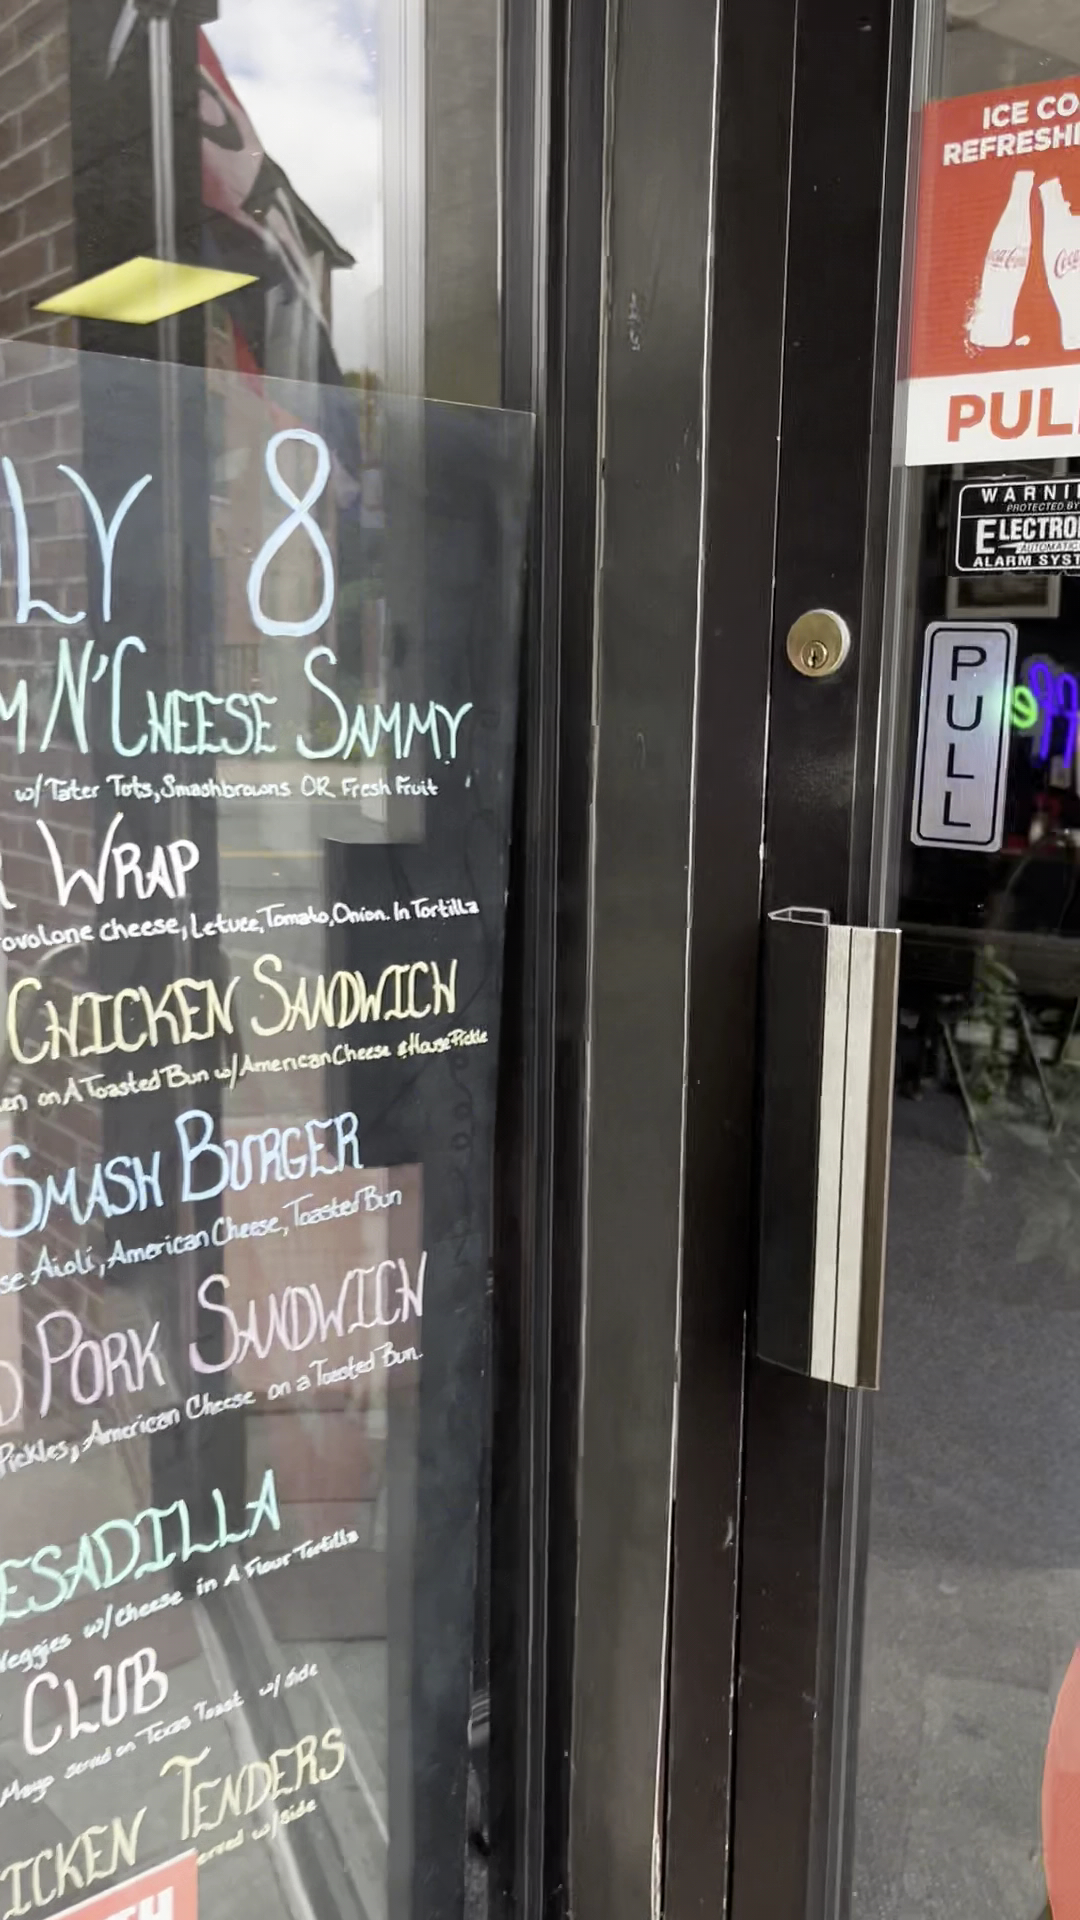 LY 8
M N'CHEESE SAMMY
w/Tater Tots, Smashbrowns OR Fresh Fruit
WRAP
ovolone cheese, Letuce, Tomato, Onion. In Tortilla
CHICKEN SANDWICH
en on A Toasted Bun w/American Cheese & House Pickle
SMASH BURGER
se Aioli, American Cheese, Toasted Bun
D PORK SANDWICH
Pickles, American Cheese on a Toasted Bun.
ESADILLA
Veggies w/Cheese in A Flour Tortilla
CLUB
Mayo served on Texas Toast w/ side
ICKEN TENDERS
erved w/side
TH
ICE CO
REFRESHI
Coca-Cola
Coca
PUL
WARNI
PROTECTED BY
ELECTRO
AUTOMATIC
ALARM SYST
PULL
ffe